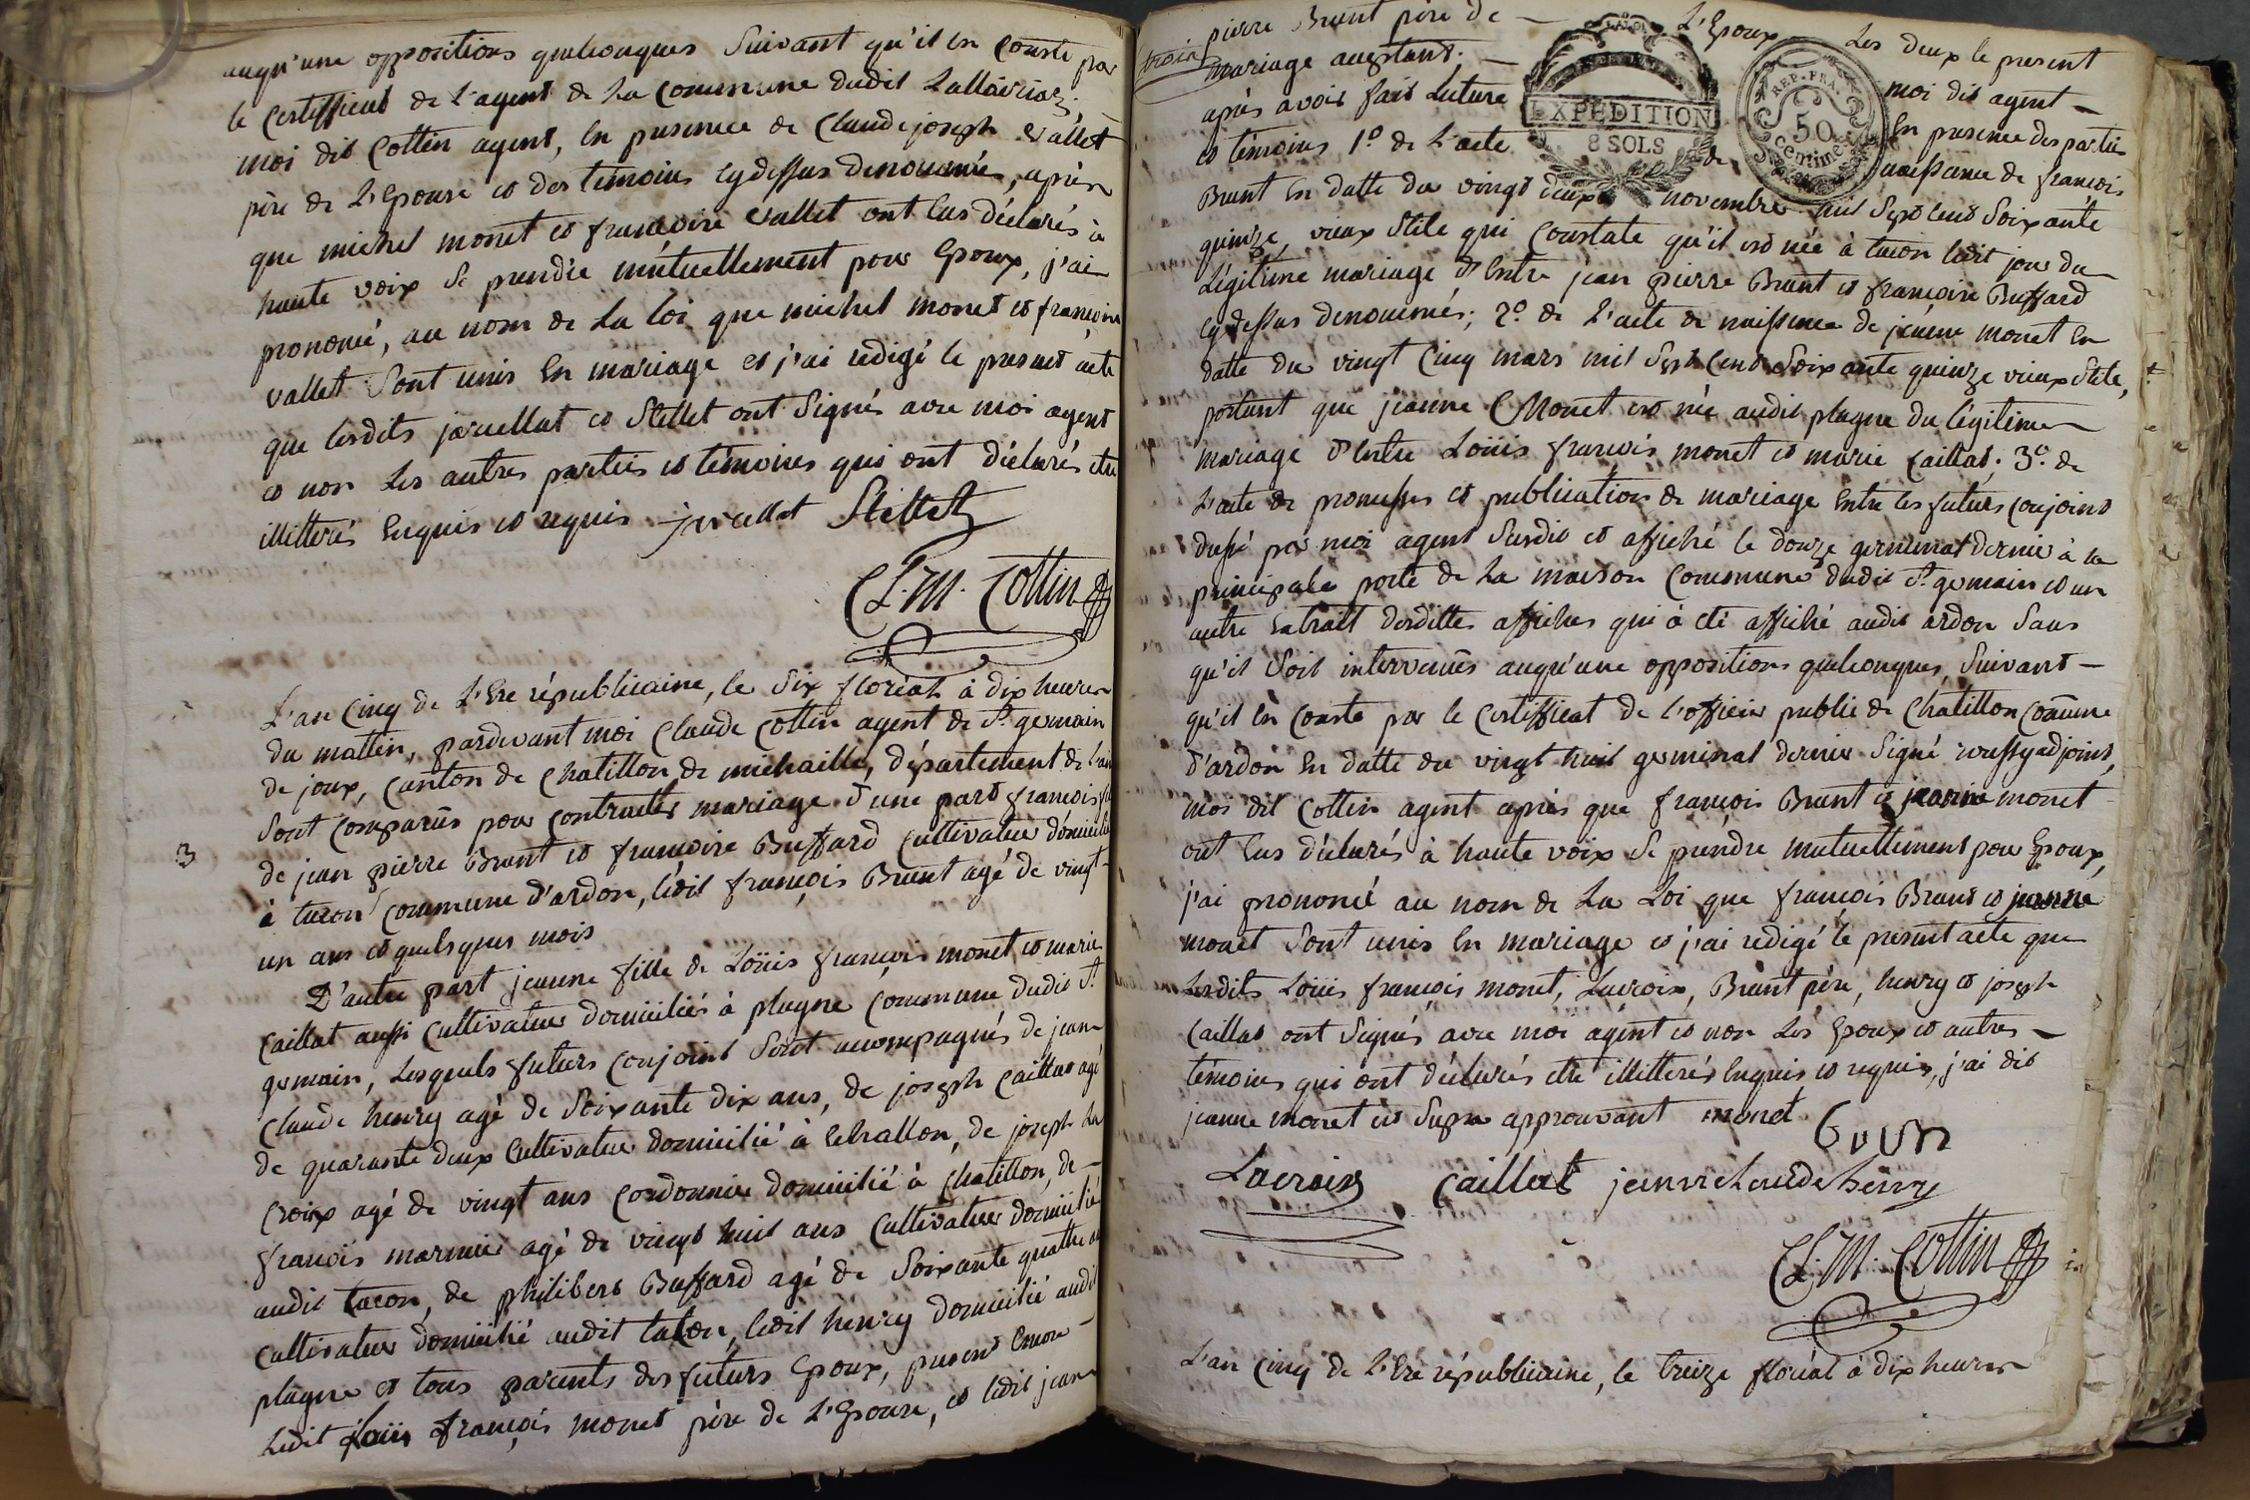 auqu'une oppositions quelconques suivant qu'il en conste par
le certifficat de l'agent de la commune dudit Lallairiaz.
moi dit Cottin agent, en presence de Claude joseph Vallet
père de l'Epouse et des témoins cy dessus denommés, après
que michel monet et françoise Vallet ont Eus déclarés à
haute voix se prendre mutuellement pour Epoux, j'ai
prononcé, au nom de la loi que michel monet et françoise
vallet sont unis en mariage et j'ai redigé le present acte
que lesdits javellat et Stellet ont signés avec moi agent
et non les autres parties et témoins qui ont déclarés etre
illitterés enquis et requis javallat Stellet
Cl. M. Cottin
L'an cinq de l'Ere républicaine, le six floréal à dix heures
du mattin, pardevant moi Claude Cottin agent de St. germain
de joux, canton de Chatillon de michaille, département de l'ain
sont comparus pour contracter mariage d'une part françois fils
3
de jean pierre Brunt et françoise Buffard cultivateur domicilié
à tacon commune d'ardon, ledit françois Brunt agé de vingt
un ans et quelsques mois
D'autre part jeanne fille de Loüis françois monet et marie
Caillat aussi cultivateur domiciliés à plagne commune dudit St.
germain, Lesquels futurs conjoint sont accompagnés de jean
Claude henry agé de soixante dix ans, de joseph Caillat agé
de quarante deux cultivateur domicilié à Echallon, de joseph la
croix agé de vingt ans cordonnier domicilié à Chatillon, de
françois marmier agé de vingt huit ans cultivateur domicilié
audit tacon, de philibert Buffard agé de soixante quattre ans
cultivateur domicilié audit tacon, ledit henry domicilié audit
plagne et tous parents des futurs Epoux, present encore
ledit Loüis françois monet père de l'Epouse, et ledit jean
pierre Brunt père de L'Epoux Les deux le present
mariage acceptant. moi dit agent
après avoir fait lecture En presence des parties
et témoins 1º. de L'acte de naissance de françois
EXPEDITION
8 SOLS
REP. FRA.
50
centimes
Brunt En datte du vingt deux novembre mil sept cent soixante
quinze, vieux stile qui constate qu'il est née à tacon ledit jour du
Légitime mariage d'Entre jean pierre Brunt et françoise Buffard
cy dessus denommés; 2º. de L'acte de naissance de jeanne monet En
datte du vingt cinq mars mil sept cent soixante quinze vieux stile,
portant que jeanne Monet est née audit plagne du légitime
mariage d'Entre Loüis françois monet et marie Caillat. 3º. de
L'acte de promesses et publication de mariage entre les futurs conjoint
dressé par moi agent susdit et affiché le douze germinal dernier à la
principale porte de la maison commune dudit St. germain et un
autre Extrait desdittes affiches qui à été affiché audit ardon sans
qu'il soit intervenus auqu'une oppositions quelconques, suivant
qu'il En conste par le certifficat de l'officier public de Chatillon commune
d'ardon En datte du vingt huit germinal dernier signé adjoint,
moi dit Cottin agent après que françois Brunt et jeanne monet
ont Eus déclarés à haute voix se prendre mutuellement pour Epoux,
j'ai prononcé au nom de la Loi que françois Brunt et jeanne
monet sont unis En mariage et j'ai redigé le present acte que
Lesdits Loüis françois monet, Lacroix, Brunt père, henry et joseph
Caillat ont signés avec moi agent et non Les Epoux et autres
témoins qui ont déclarés etre illitterés Enquis et requis, j'ai dit
jeanne monet et supra approuvant monet
Lacroix Caillat jean claude henry
Cl. M. Cottin
L'an cinq de l'Ere républicaine, le treize floréal à dix heures